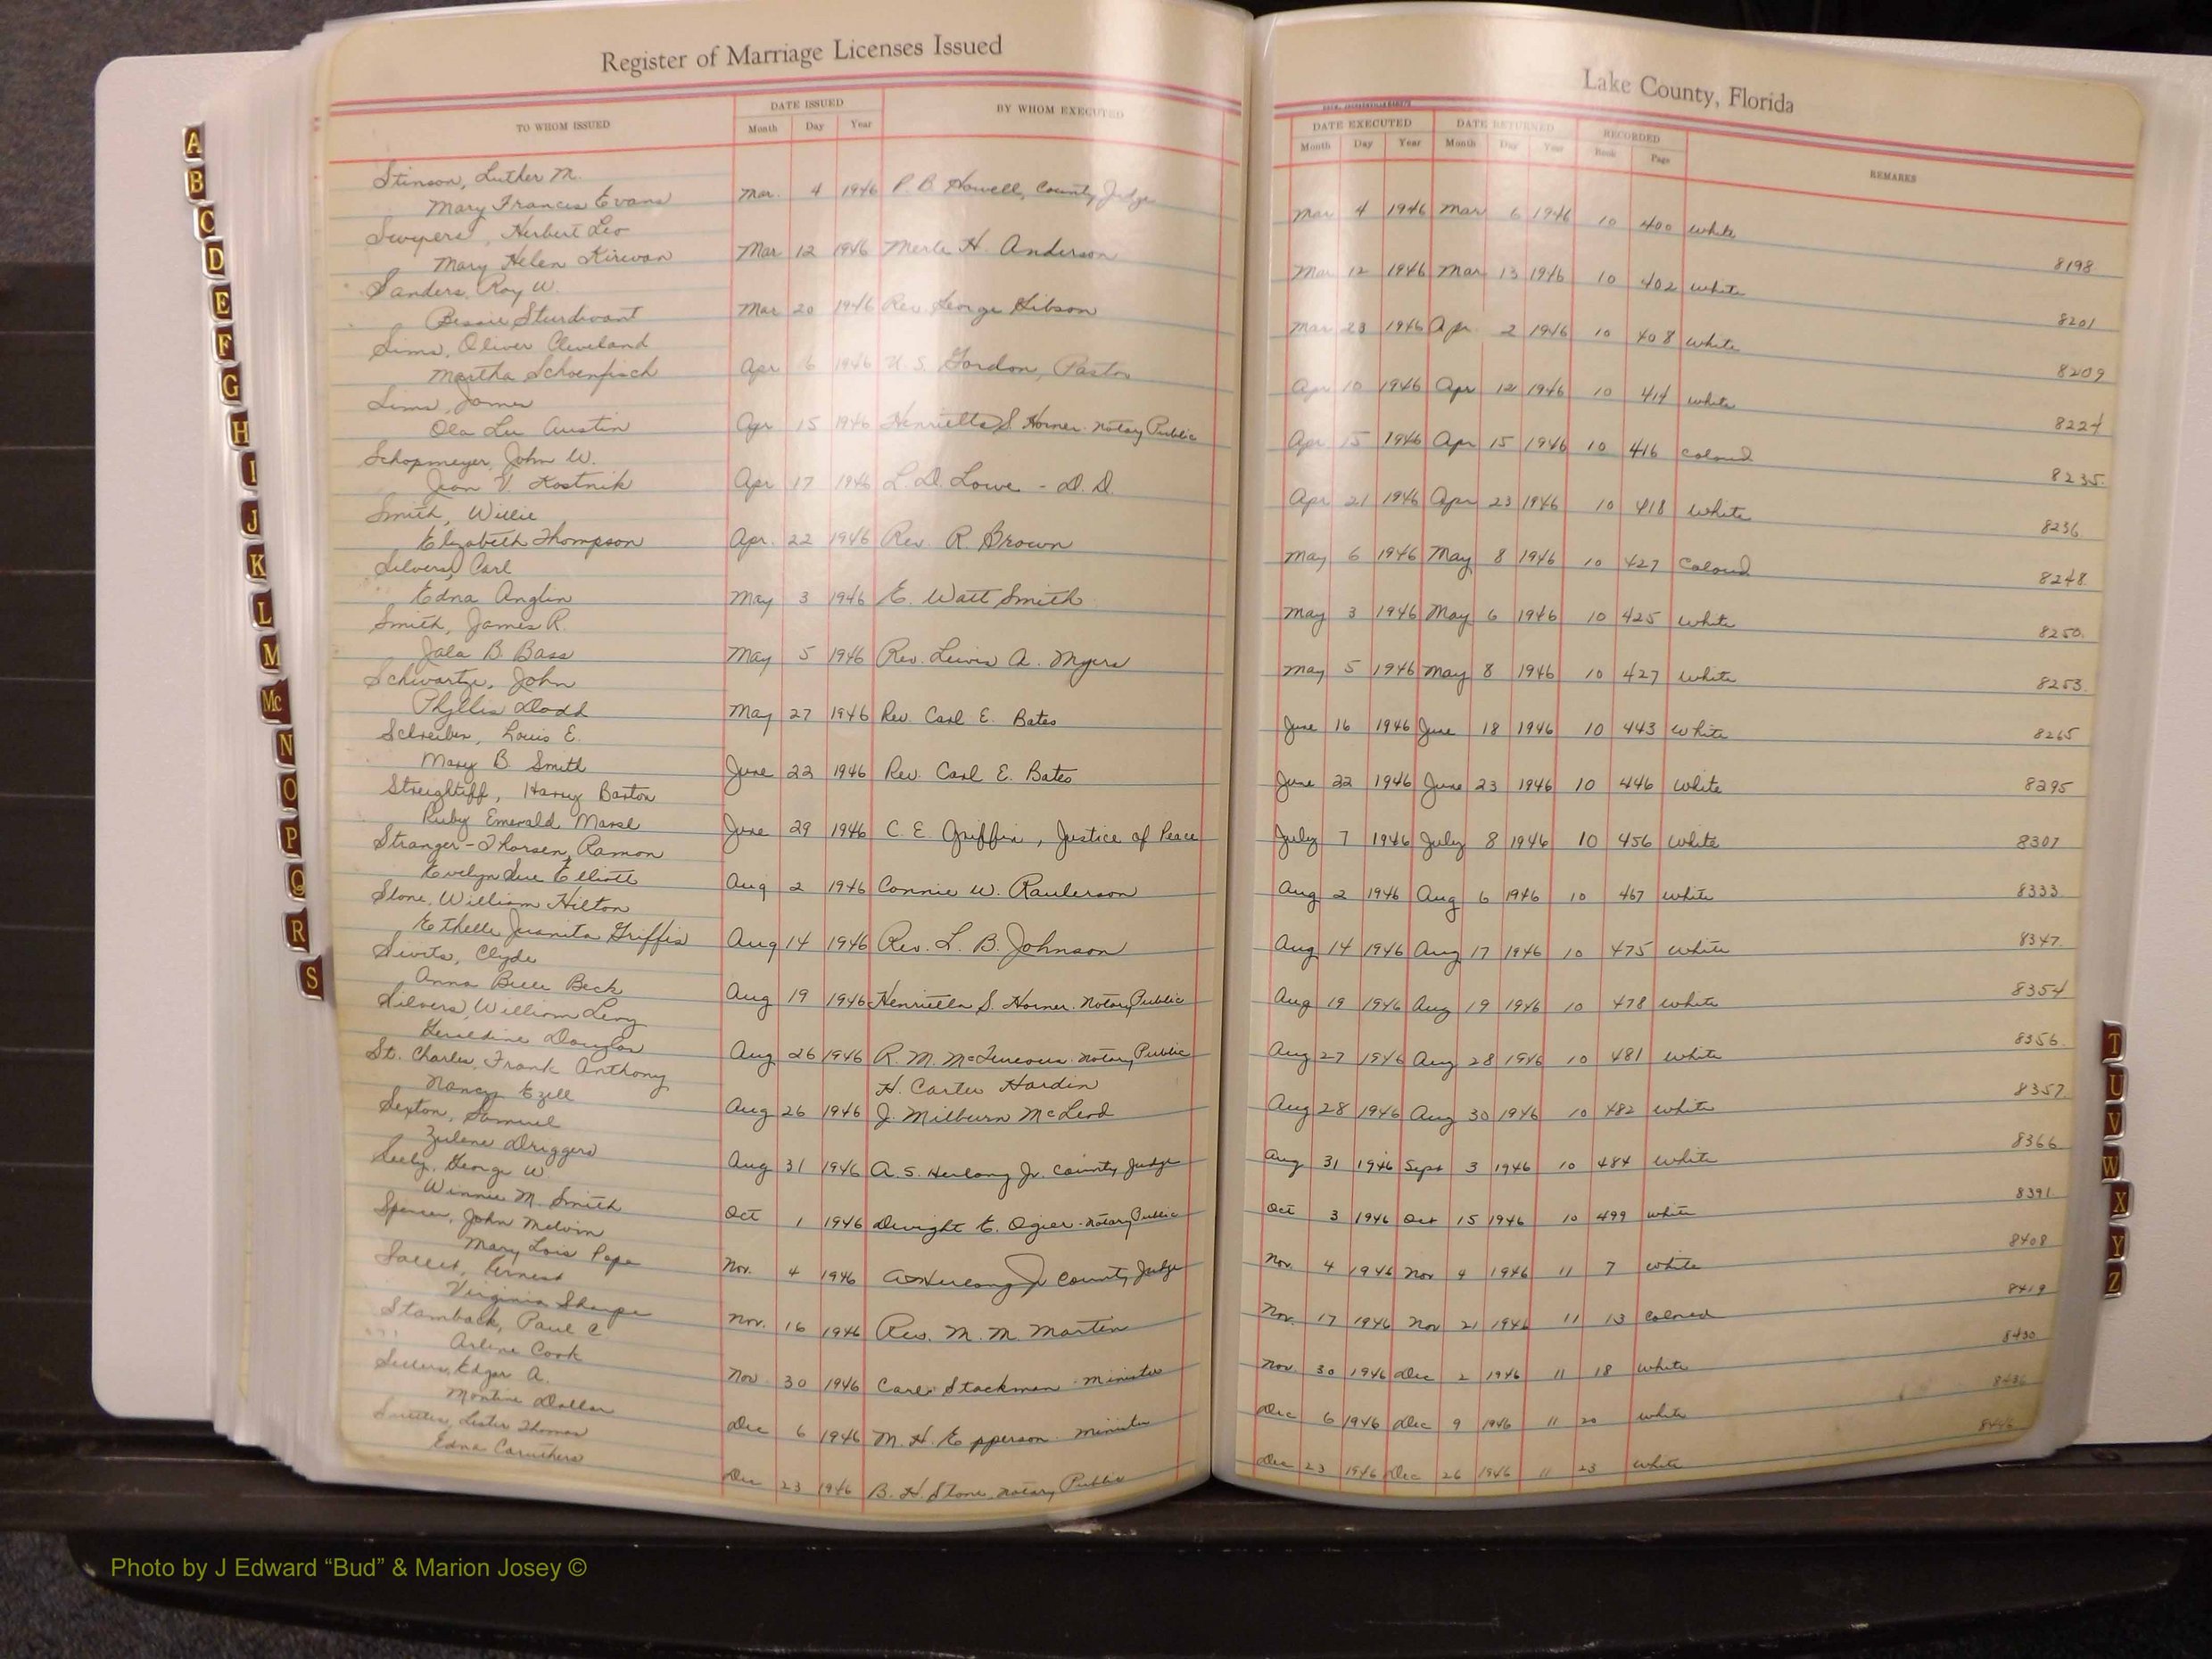 Register of Marriage Licenses Issued
TO WHOM ISSUED DATE ISSUED BY WHOM EXECUTED
Month Day Year
Stinson, Luther M.
Mary Frances Evans Mar. 4 1946 P. B. Howell, County Judge
Swypers, Herbert Leo
Mary Helen Kirwan Mar 12 1946 Merle H. Anderson
Sanders, Roy W.
Bessie Sturdivant Mar 20 1946 Rev. George Gibson
Sims, Oliver Cleveland
Martha Schoenfisch Apr 6 1946 U. S. Gordon, Pastor
Sims, James
Ola Lee Austin Apr 15 1946 Henrietta S Horner. Notary Public
Schopmeyer, John W.
Jean V. Kostnik Apr 17 1946 L. D. Lowe - D. D.
Smith, Willie
Elizabeth Thompson Apr. 22 1946 Rev. R. Brown
Silvers, Carl
Edna Anglin May 3 1946 E. Watt Smith
Smith, James R.
Jala B. Bass May 5 1946 Rev. Lewis A. Myers
Schwartze, John
Phyllis Dodd May 27 1946 Rev. Carl E. Bates
Schreiber, Louis E.
Mary B. Smith June 22 1946 Rev. Carl E. Bates
Streightiff, Harry Barton
Ruby Emerald Marsl June 29 1946 C. E. Griffin, Justice of Peace
Stranger-Thorsen, Ramon
Evelyn Sue Elliott Aug 2 1946 Connie W. Raulerson
Stone, William Hilton
Ethelle Juanita Griffis Aug 14 1946 Rev. L. B. Johnson
Sivits, Clyde
Anna Belle Beck Aug 19 1946 Henrietta S. Horner. Notary Public
Silvers, William Levy
Geraldine Douglas Aug 26 1946 R. M. Notary Public
St. Charles, Frank Anthony H. Carter Hardin
Nancy Ezell Aug 26 1946 J. Milburn McLeod
Sexton, Samuel
Zulene Driggers Aug 31 1946 A. S. Herlong Jr. County Judge
Seely, George W.
Winnie M. Smith Oct 1 1946 Dwight E. Ogier - Notary Public
Spencer, John Melvin
Mary Lois Pope Nov. 4 1946 AS Herlong Jr County Judge
Ernest
Virginia Sharpe Nov. 16 1946 Rev. M. M. Martin
Stamback, Paul C
Arlene Cook Nov 30 1946 Carl Stackman - Minister
Sellers, Edgar A.
Montine Dollar Dec 6 1946 M. H. Epperson. Minister
Lester Thomas
Edna Caruthers Dec 23 1946 B. H. Stone, Notary Public
Lake County, Florida
DATE EXECUTED DATE RETURNED RECORDED REMARKS
Month Day Year Month Day Year Book Page
Mar 4 1946 Mar 6 1946 10 400 White 8198
Mar 12 1946 Mar 13 1946 10 402 White 8201
Mar 23 1946 Apr. 2 1946 10 408 White 8209
Apr 10 1946 Apr 12 1946 10 414 White 8224
Apr 15 1946 Apr 15 1946 10 416 Colored 8235
Apr 21 1946 Apr 23 1946 10 418 White 8236
May 6 1946 May 8 1946 10 427 Colored 8248
May 3 1946 May 6 1946 10 425 White 8250
May 5 1946 May 8 1946 10 427 White 8253
June 16 1946 June 18 1946 10 443 White 8265
June 22 1946 June 23 1946 10 446 White 8295
July 7 1946 July 8 1946 10 456 White 8307
Aug 2 1946 Aug 6 1946 10 467 White 8333
Aug 14 1946 Aug 17 1946 10 475 White 8347
Aug 19 1946 Aug 19 1946 10 478 White 8354
Aug 27 1946 Aug 28 1946 10 481 White 8356
Aug 28 1946 Aug 30 1946 10 482 White 8357
Aug 31 1946 Sept 3 1946 10 484 White 8366
Oct 3 1946 Oct 15 1946 10 499 White 8391
Nov. 4 1946 Nov 4 1946 11 7 White 8408
Nov. 17 1946 Nov 21 1946 11 13 Colored 8419
Nov. 30 1946 Dec 2 1946 11 18 White 8430
Dec 6 1946 Dec 9 1946 11 20 White 8436
Dec 23 1946 Dec 26 1946 11 23 White 8446
A
B
C
D
E
F
G
H
I
J
K
L
M
Mc
N
O
P
Q
R
S
T
U
V
W
X
Y
Z
Photo by J Edward “Bud” & Marion Josey ©